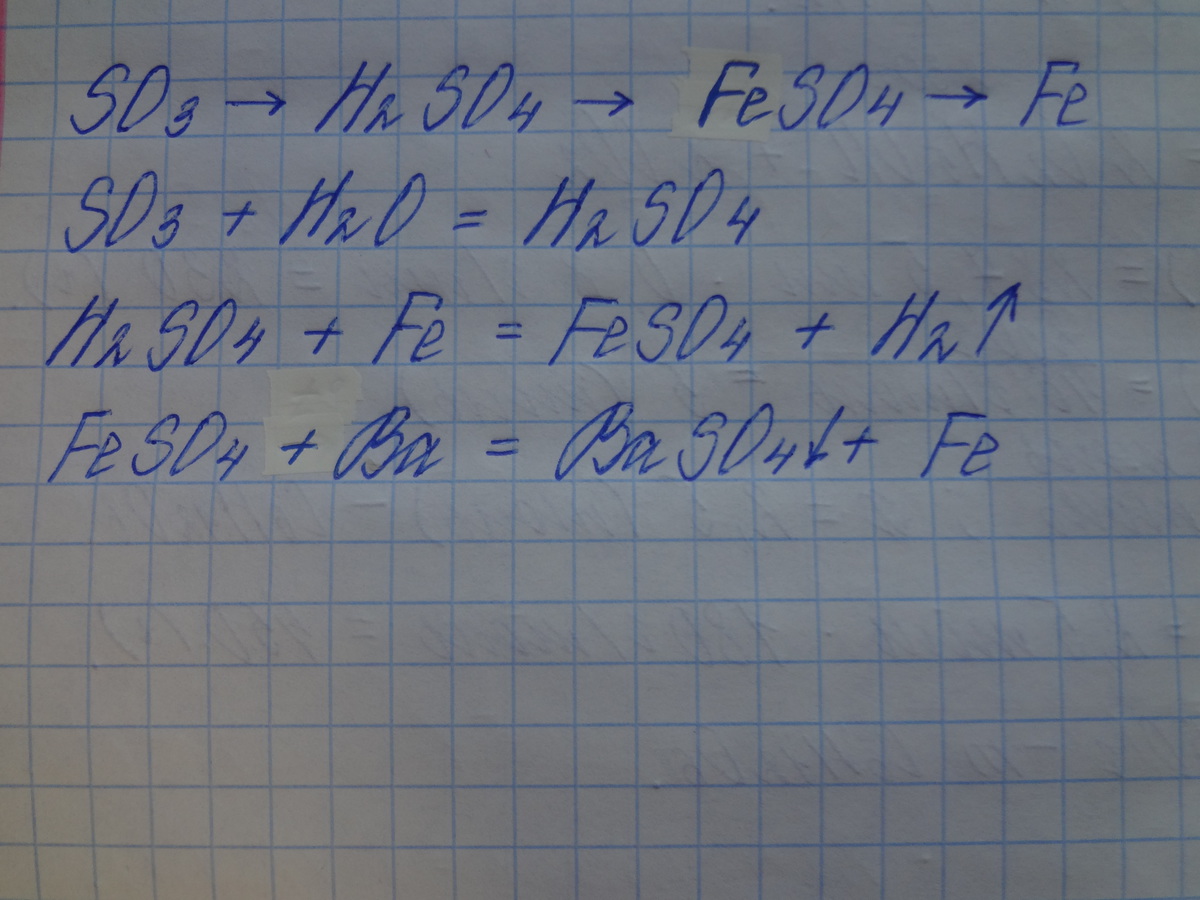 SO₃ → H₂SO₄ → FeSO₄ → Fe
SO₃ + H₂O = H₂SO₄
H₂SO₄ + Fe = FeSO₄ + H₂↑
FeSO₄ + Ba = BaSO₄↓ + Fe